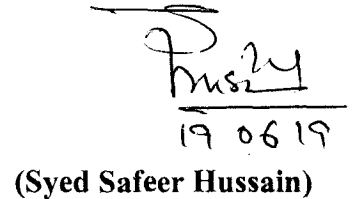 19 06 19
(Syed Safeer Hussain)